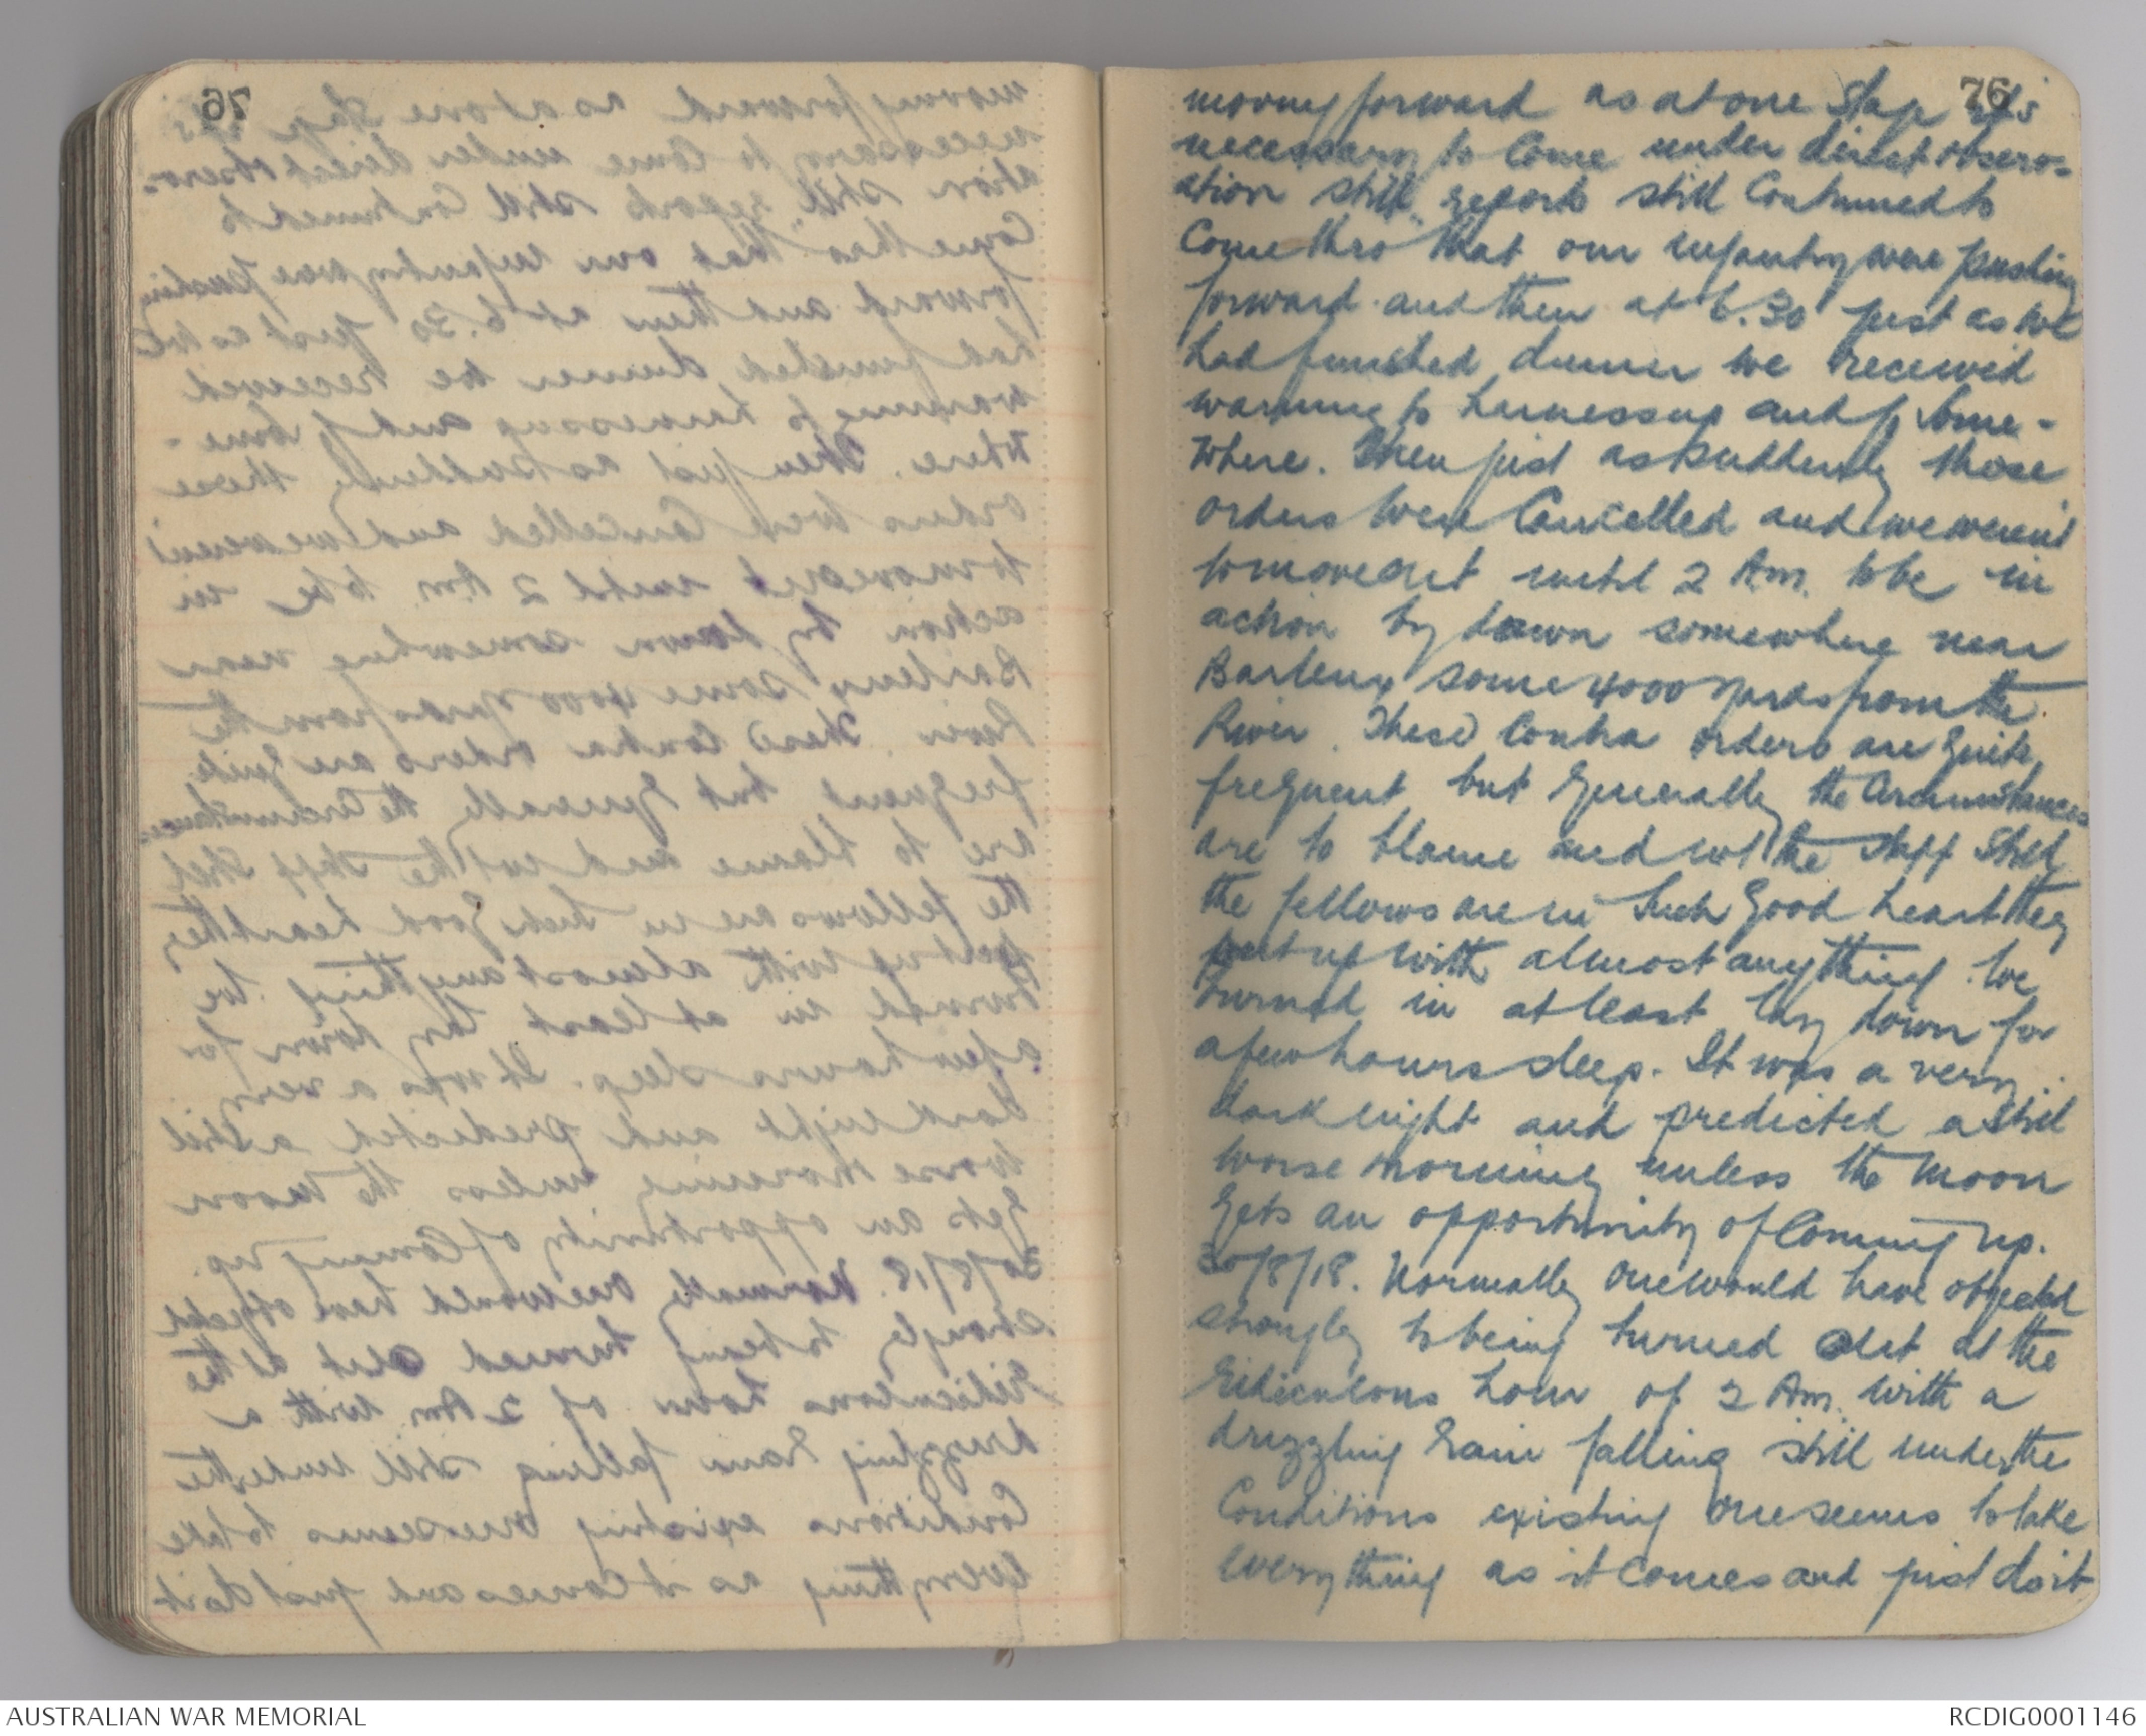 76
moving forward as at one stage it is
necessary to come under direct observ-
ation still reports still continued to
come thro' that our infantry were pushing
forward and then at 6.30 just as we
had finished dinner we received
warning to harness up and go some-
where. Then just as suddenly those
orders were cancelled and we weren't
to move out until 2 Am. to be in
action by dawn somewhere near
Barleux some 4000 yards from the
River. These contra orders are quite
frequent but generally the circumstances
are to blame and not the staff still
the fellows are in such good heart they
put up with almost anything. We
turned in at least lay down for
a few hours sleep. It was a very
dark night and predicted a still
worse morning unless the moon
gets an opportunity of coming up.
30/8/18. Normally one would have objected
strongly to being turned out at the
ridiculous hour of 2 Am. with a
drizzling rain falling still under the
conditions existing one seems to take
everything as it comes and just do it
AUSTRALIAN WAR MEMORIAL
RCDIG0001146